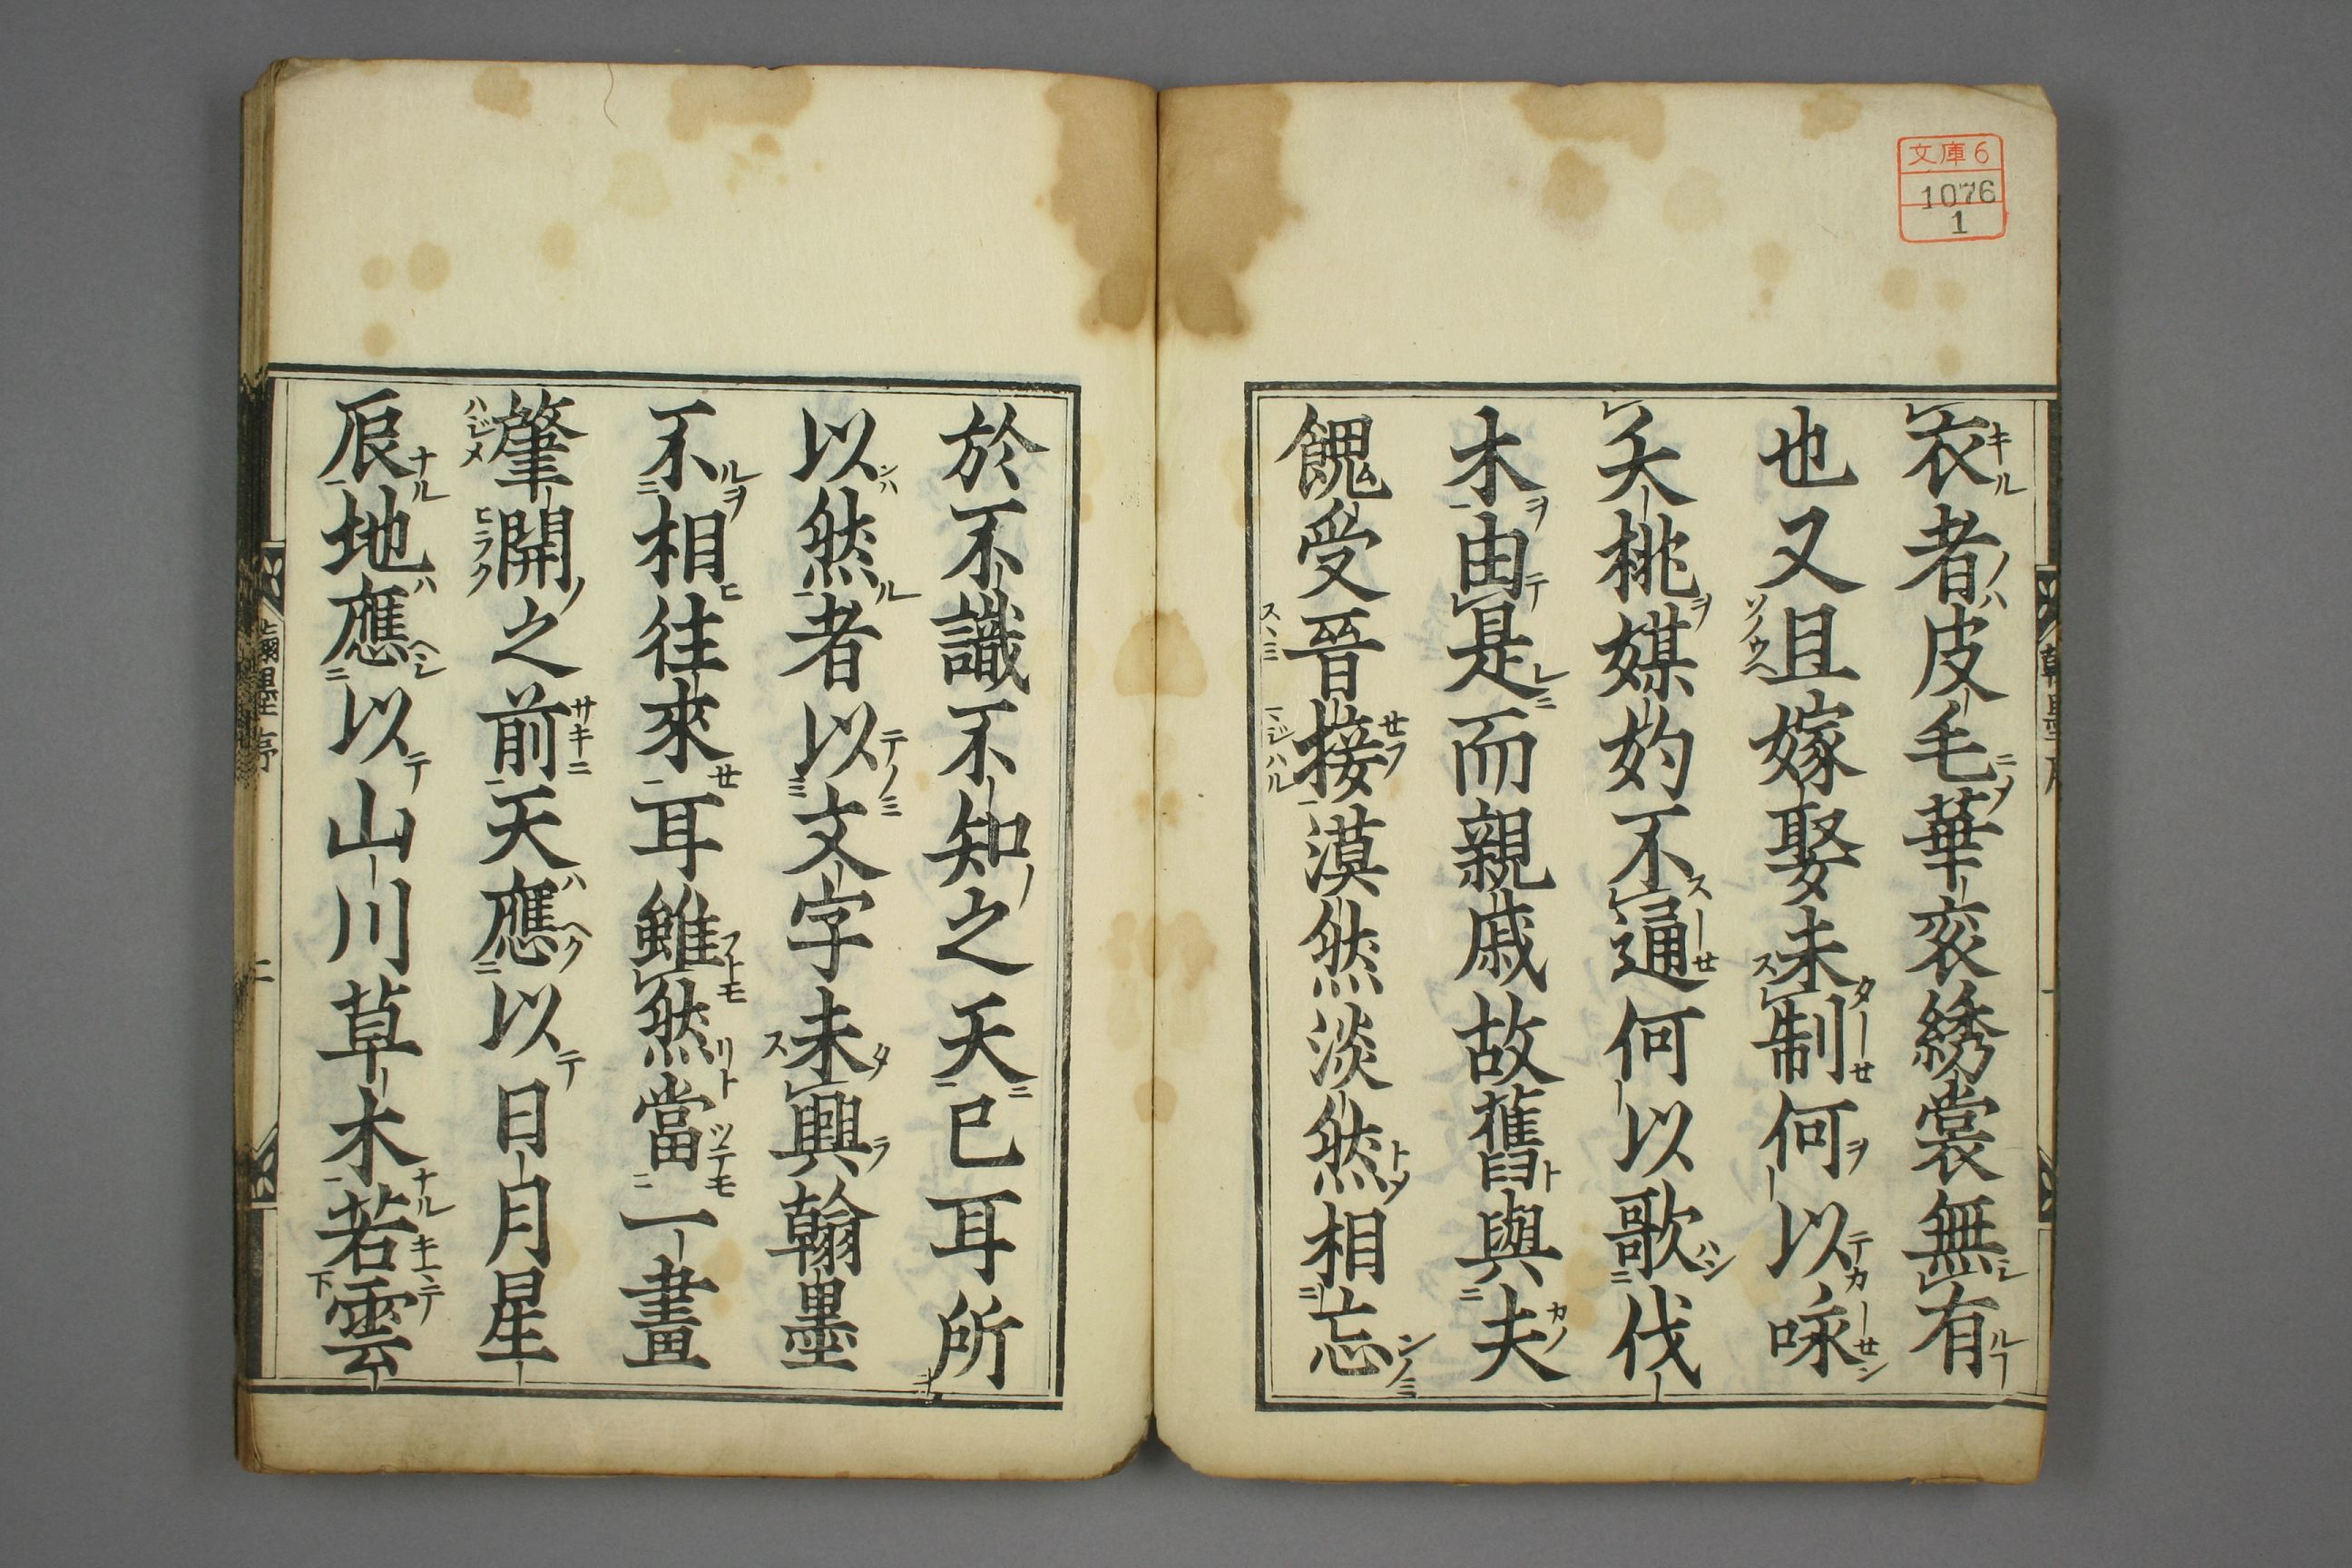 文庫6
1076
1
衣者皮毛華衮綉裳無有
也又且嫁娶未制何以咏
夭桃媒妁不通何以歌伐
木由是而親戚故舊與夫
餽受晉接漠然淡然相忘
於不識不知之天已耳所
以然者以文字未興翰墨
不相往來耳雖然當一畫
肇開之前天應以日月星
辰地應以山川草木若雲
翰墨序
二